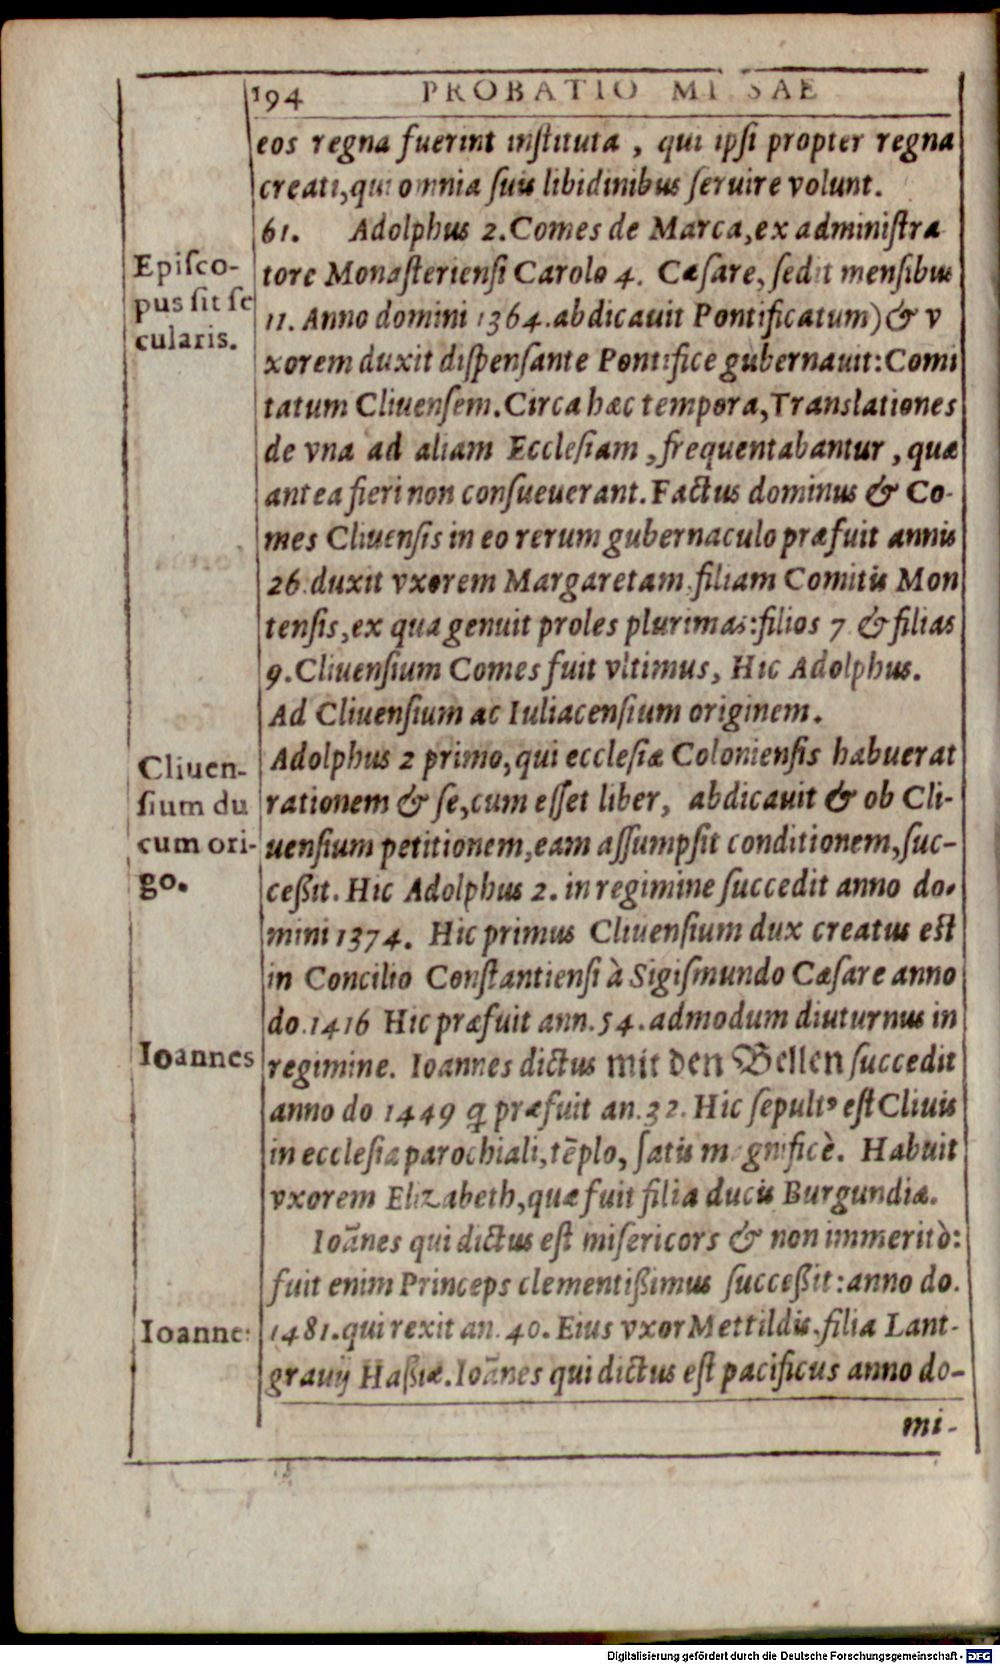 194 PROBATIO MISSAE
eos regna fuerint instituta, qui ipsi propter regna
creati, qui omnia suis libidinibus seruire volunt.
61. Adolphus 2. Comes de Marca, ex administra
Episco-
pus fit se
cularis.
tore Monasteriensi Carolo 4. Cæsare, sedit mensibus
11. Anno domini 1364. abdicauit Pontificatum) & v
xorem duxit dispensante Pontifice gubernauit: Comi
tatum Cliuensem. Circa hæc tempora, Translationes
de vna ad aliam Ecclesiam, frequentabantur, quæ
antea fieri non consueuerant. Factus dominus & Co-
mes Cliuensis in eo rerum gubernaculo præfuit annis
26. duxit vxorem Margaretam, filiam Comitis Mon
tensis, ex qua genuit proles plurimas: filios 7 & filias
9. Cliuensium Comes fuit vltimus, Hic Adolphus.
Ad Cliuensium ac Iuliacensium originem.
Cliuen-
sium du
cum ori-
go.
Adolphus 2 primo, qui ecclesiæ Coloniensis habuerat
rationem & se, cum esset liber, abdicauit & ob Cli-
uensium petitionem, eam assumpsit conditionem, suc-
ceßit. Hic Adolphus 2. in regimine succedit anno do-
mini 1374. Hic primus Cliuensium dux creatus est
in Concilio Constantiensi à Sigismundo Cæsare anno
do. 1416 Hic præfuit ann. 54. admodum diuturnus in
Ioannes
regimine. Ioannes dictus mit den Bellen succedit
anno do 1449 q præfuit an. 32. Hic sepultꝰ est Cliuis
in ecclesia parochiali, tẽplo, satis magnificè. Habuit
vxorem Elizabeth, quæ fuit filia ducis Burgundiæ.
Ioãnes qui dictus est misericors & non immeritò:
fuit enim Princeps clementißimus succeßit: anno do.
Ioannes
1481. qui rexit an. 40. Eius vxor Mettildis, filia Lant-
grauij Haßiæ. Ioãnes qui dictus est pacificus anno do-
mi-
Digitalisierung gefördert durch die Deutsche Forschungsgemeinschaft - DFG